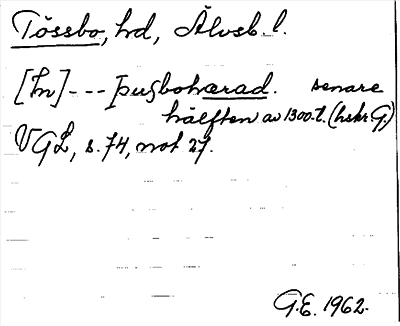 Tössbo, hd, Älvsb. l.
[In] --- þuſbohærad. senare
hälften av 1300-t. (hskr G.)
VGL, s. 74, not 27.
G.E. 1962.